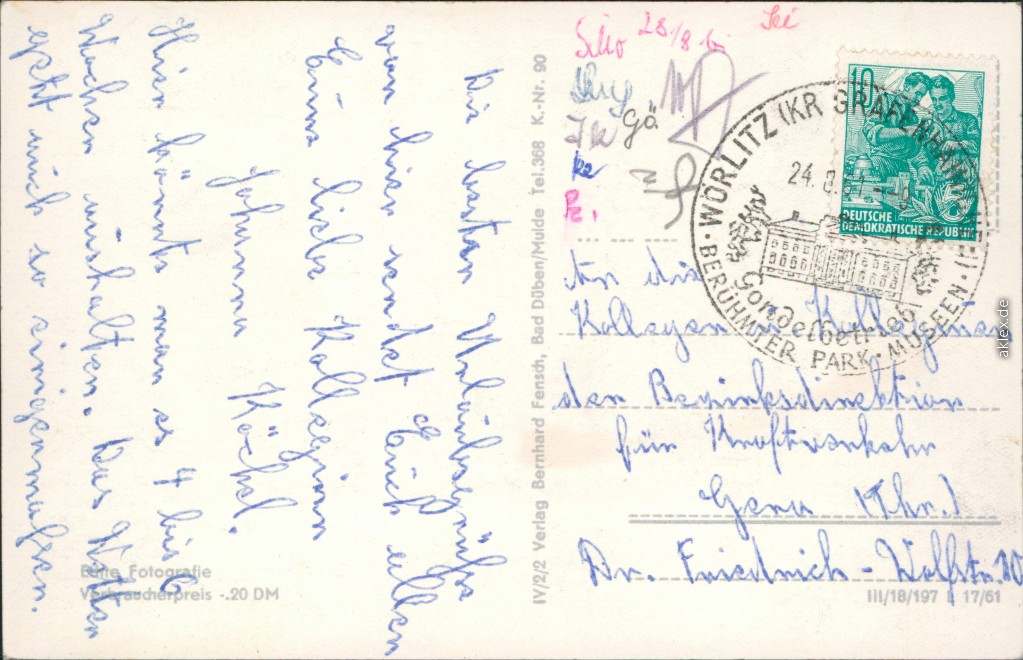 Die besten Urlaubsgrüße
von hier sendet Euch allen
Eure liebe Kollegin
Johanna Köchel.
Hier könnte man es 4 bis 6
Wochen aushalten. Das Wetter
geht auch so einigermaßen.
Bunte Fotografie
Verbraucherpreis -.20 DM
IV/2/2 Verlag Bernhard Fensch, Bad Düben/Mulde Tel.368 K.-Nr. 90
28/8
Gä
10
DEUTSCHE
DEMOKRATISCHE REPUBLIK
WÖRLITZ (KR GRÄFENHAINICHEN)
24.8.61
BERÜHMTER PARK · MUSEEN ·
Gondelbetrieb
An die
Kollegen u. Kolleginnen
der Bezirksdirektion
für Kraftverkehr
Gera (Thr.)
Dr. Friedrich-Wolfstr. 10
III/18/197 L 17/61
aklex.de